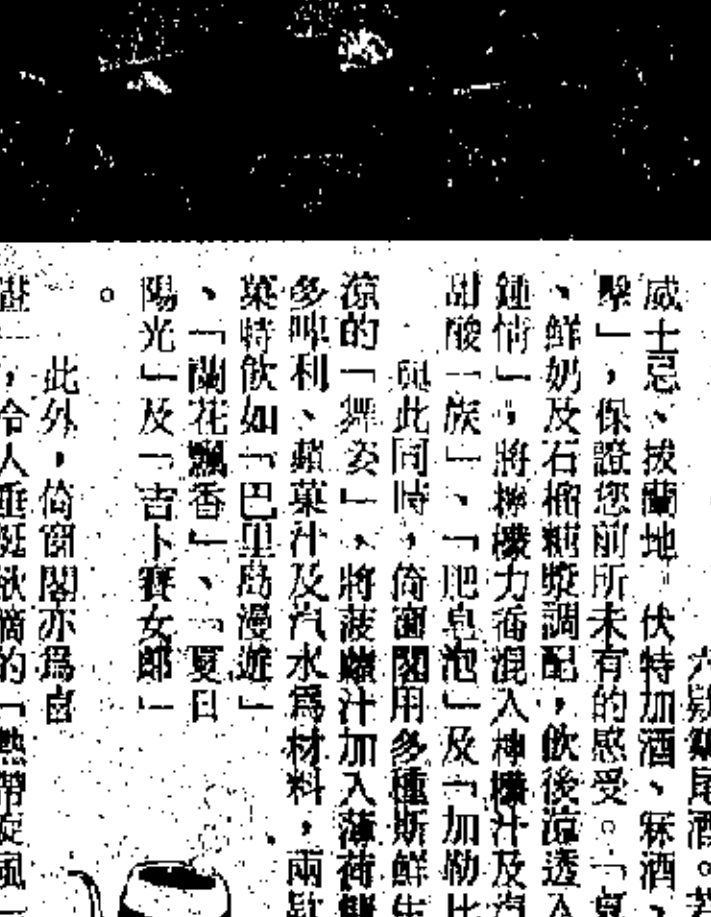 六款雞尾酒。若
威士忌、拔蘭地、伏特加酒、冧酒、
擊」，保證您前所未有的感受。「
、鮮奶及石榴糖漿調配，飲後涼透入
鍾情」，將檸檬力喬混入檸檬汁及
甜酸一族」、「肥皂泡」及「加勒比
與此同時，倚窗閣用多種新鮮
涼的「舞姿」、將菠蘿汁加入薄荷
多啤利、蘋菓汁及汽水爲材料，兩款
菓特飲如「巴里島漫遊」
、「蘭花飄香」、「夏日
陽光」及「吉卜賽女郎」
。
此外，倚窗閣亦爲
，令人垂涎欲滴的「熱帶旋風